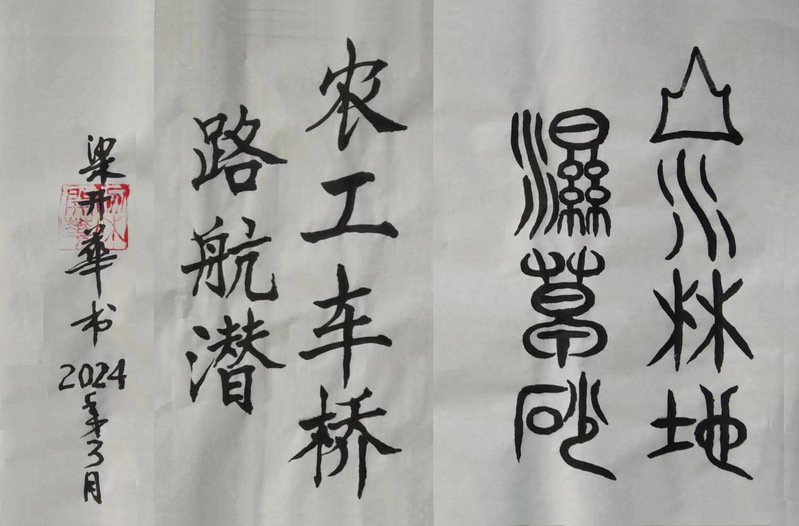 山川林地
濕草砂
农工车桥
路航潜
梁开華书2024年3月